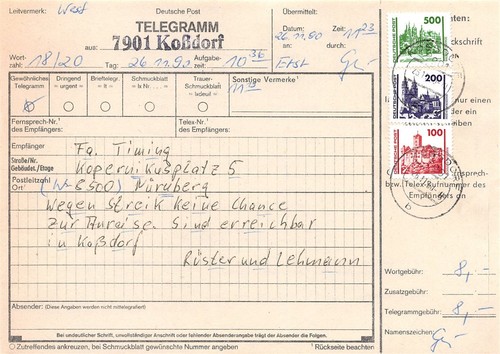 Leitvermerk: West
Deutsche Post
TELEGRAMM
aus: 7901 Koßdorf
Übermittelt:
Datum: 26.11.90 Zeit: 1123
an: Efst durch:
Wort-
zahl: 18/20 Tag: 26.11.90 Aufgabe-
zeit: 1036
Gewöhnliches
Telegramm
Dringend
= urgent =
Brieftelegr.
= lt =
Schmuckblatt
= lx Nr. =
Trauer-
Schmuckblatt
= lxdeuil =
Sonstige Vermerke¹
Fernsprech-Nr.¹
des Empfängers:
Telex-Nr.¹
des Empfängers:
Empfänger Fa. Timing
Straße/Nr.
Gebäudeteil/Etage Kopernikusplatz 5
Postleitzahl
Ort¹ (W-8500) Nürnberg
Wegen Streik keine Chance
zur Anreise. Sind erreichbar
in Koßdorf
Rüster und Lehmann
Absender: (Diese Angaben werden nicht mittelegrafiert)
Bei undeutlicher Schrift, unvollständiger Anschrift oder fehlender Absenderangabe trägt der Absender die Folgen.
Zutreffendes ankreuzen, bei Schmuckblatt gewünschte Nummer angeben ¹ Rückseite beachten
500
DEUTSCHE POST
200
DEUTSCHE POST
100
DEUTSCHE POST
nur einen
bzw. Telex-Rufnummer des
Empfängers an
Wortgebühr: 8,-
Zusatzgebühr:
Telegrammgebühr: 8,-
Namenszeichen: